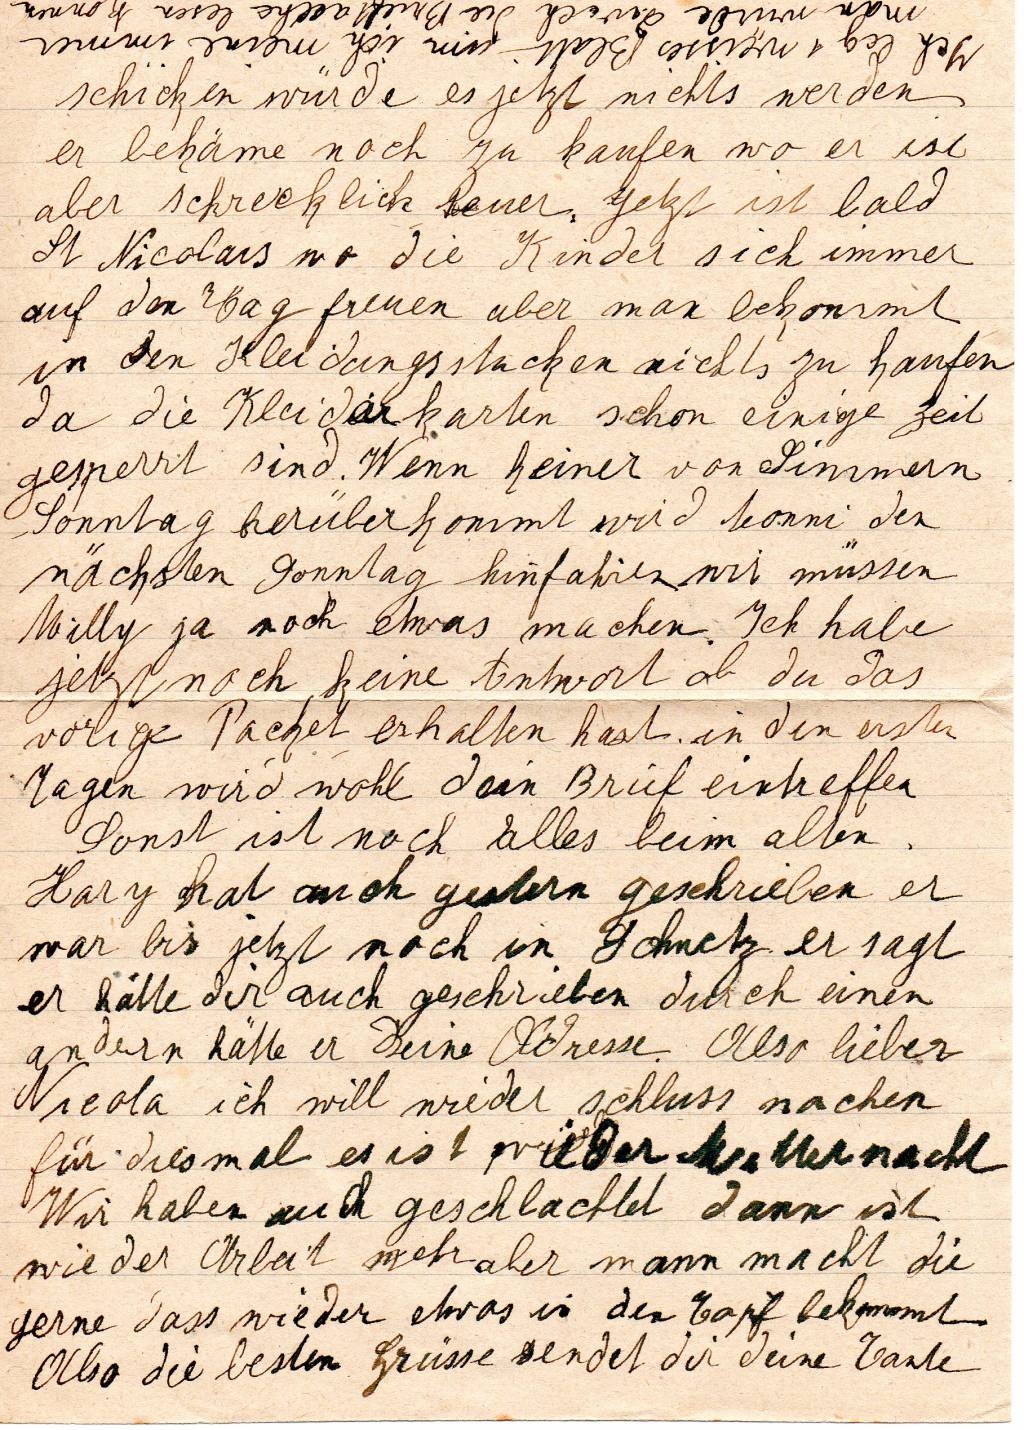 Ich leg 1 weisses Blatt um ich meine immer
man würde durch die Brieftasche lesen können
schicken würde es jetzt nichts werden
er bekäme noch zu kaufen wo er ist
aber schrecklich teuer. Jetzt ist bald
St Nicolaus wo die Kinder sich immer
auf den Tag freuen aber man bekommt
in den Kleidungsstucken nichts zu kaufen
da die Kleiderkarten schon einige Zeit
gesperrt sind. Wenn keiner von Simmern
Sonntag herüberkommt wird den
nächsten Sonntag hinfahren wir müssen
Willy ja noch etwas machen. Ich habe
jetzt noch keine Entwort ob du das
vorige Packet erhalten hast. in den ersten
Tagen wird wohl dein Brief eintreffen
Sonst ist noch alles beim alten.
Hary hat auch gestern geschrieben er
war bis jetzt noch in er sagt
er hätte dir auch geschrieben durch einen
andern hätte er Deine Adresse. Also lieber
Nicola ich will wieder schluss machen
für diesmal es ist wieder Mitternacht
Wir haben auch geschlachtet dann ist
wieder Arbeit mehr aber mann macht die
gerne dass wieder etwas in den Topf bekommt
Also die besten Grüsse sendet dir deine Tante